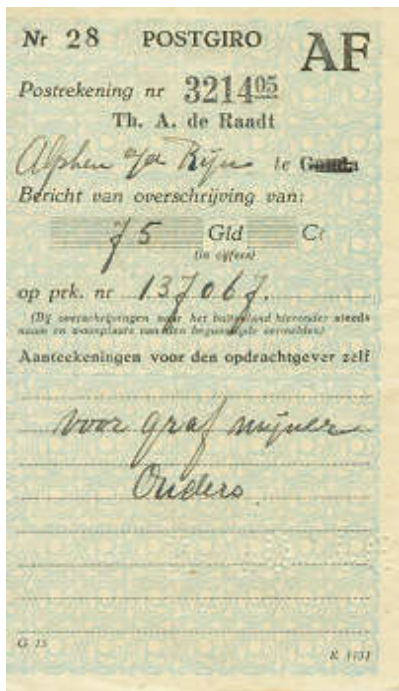 Nr 28 POSTGIRO AF
Postrekening nr 321405
Th. A. de Raadt
Alphen a/d Rijn te Gouda
Bericht van overschrijving van:
75 Gld Ct
(in cijfers)
op prk. nr 137067.
(Bij overschrijvingen naar het buitenland hieronder steeds
naam en woonplaats van den begunstigde vermelden)
Aanteekeningen voor den opdrachtgever zelf
voor graf mijner
Ouders
G 15